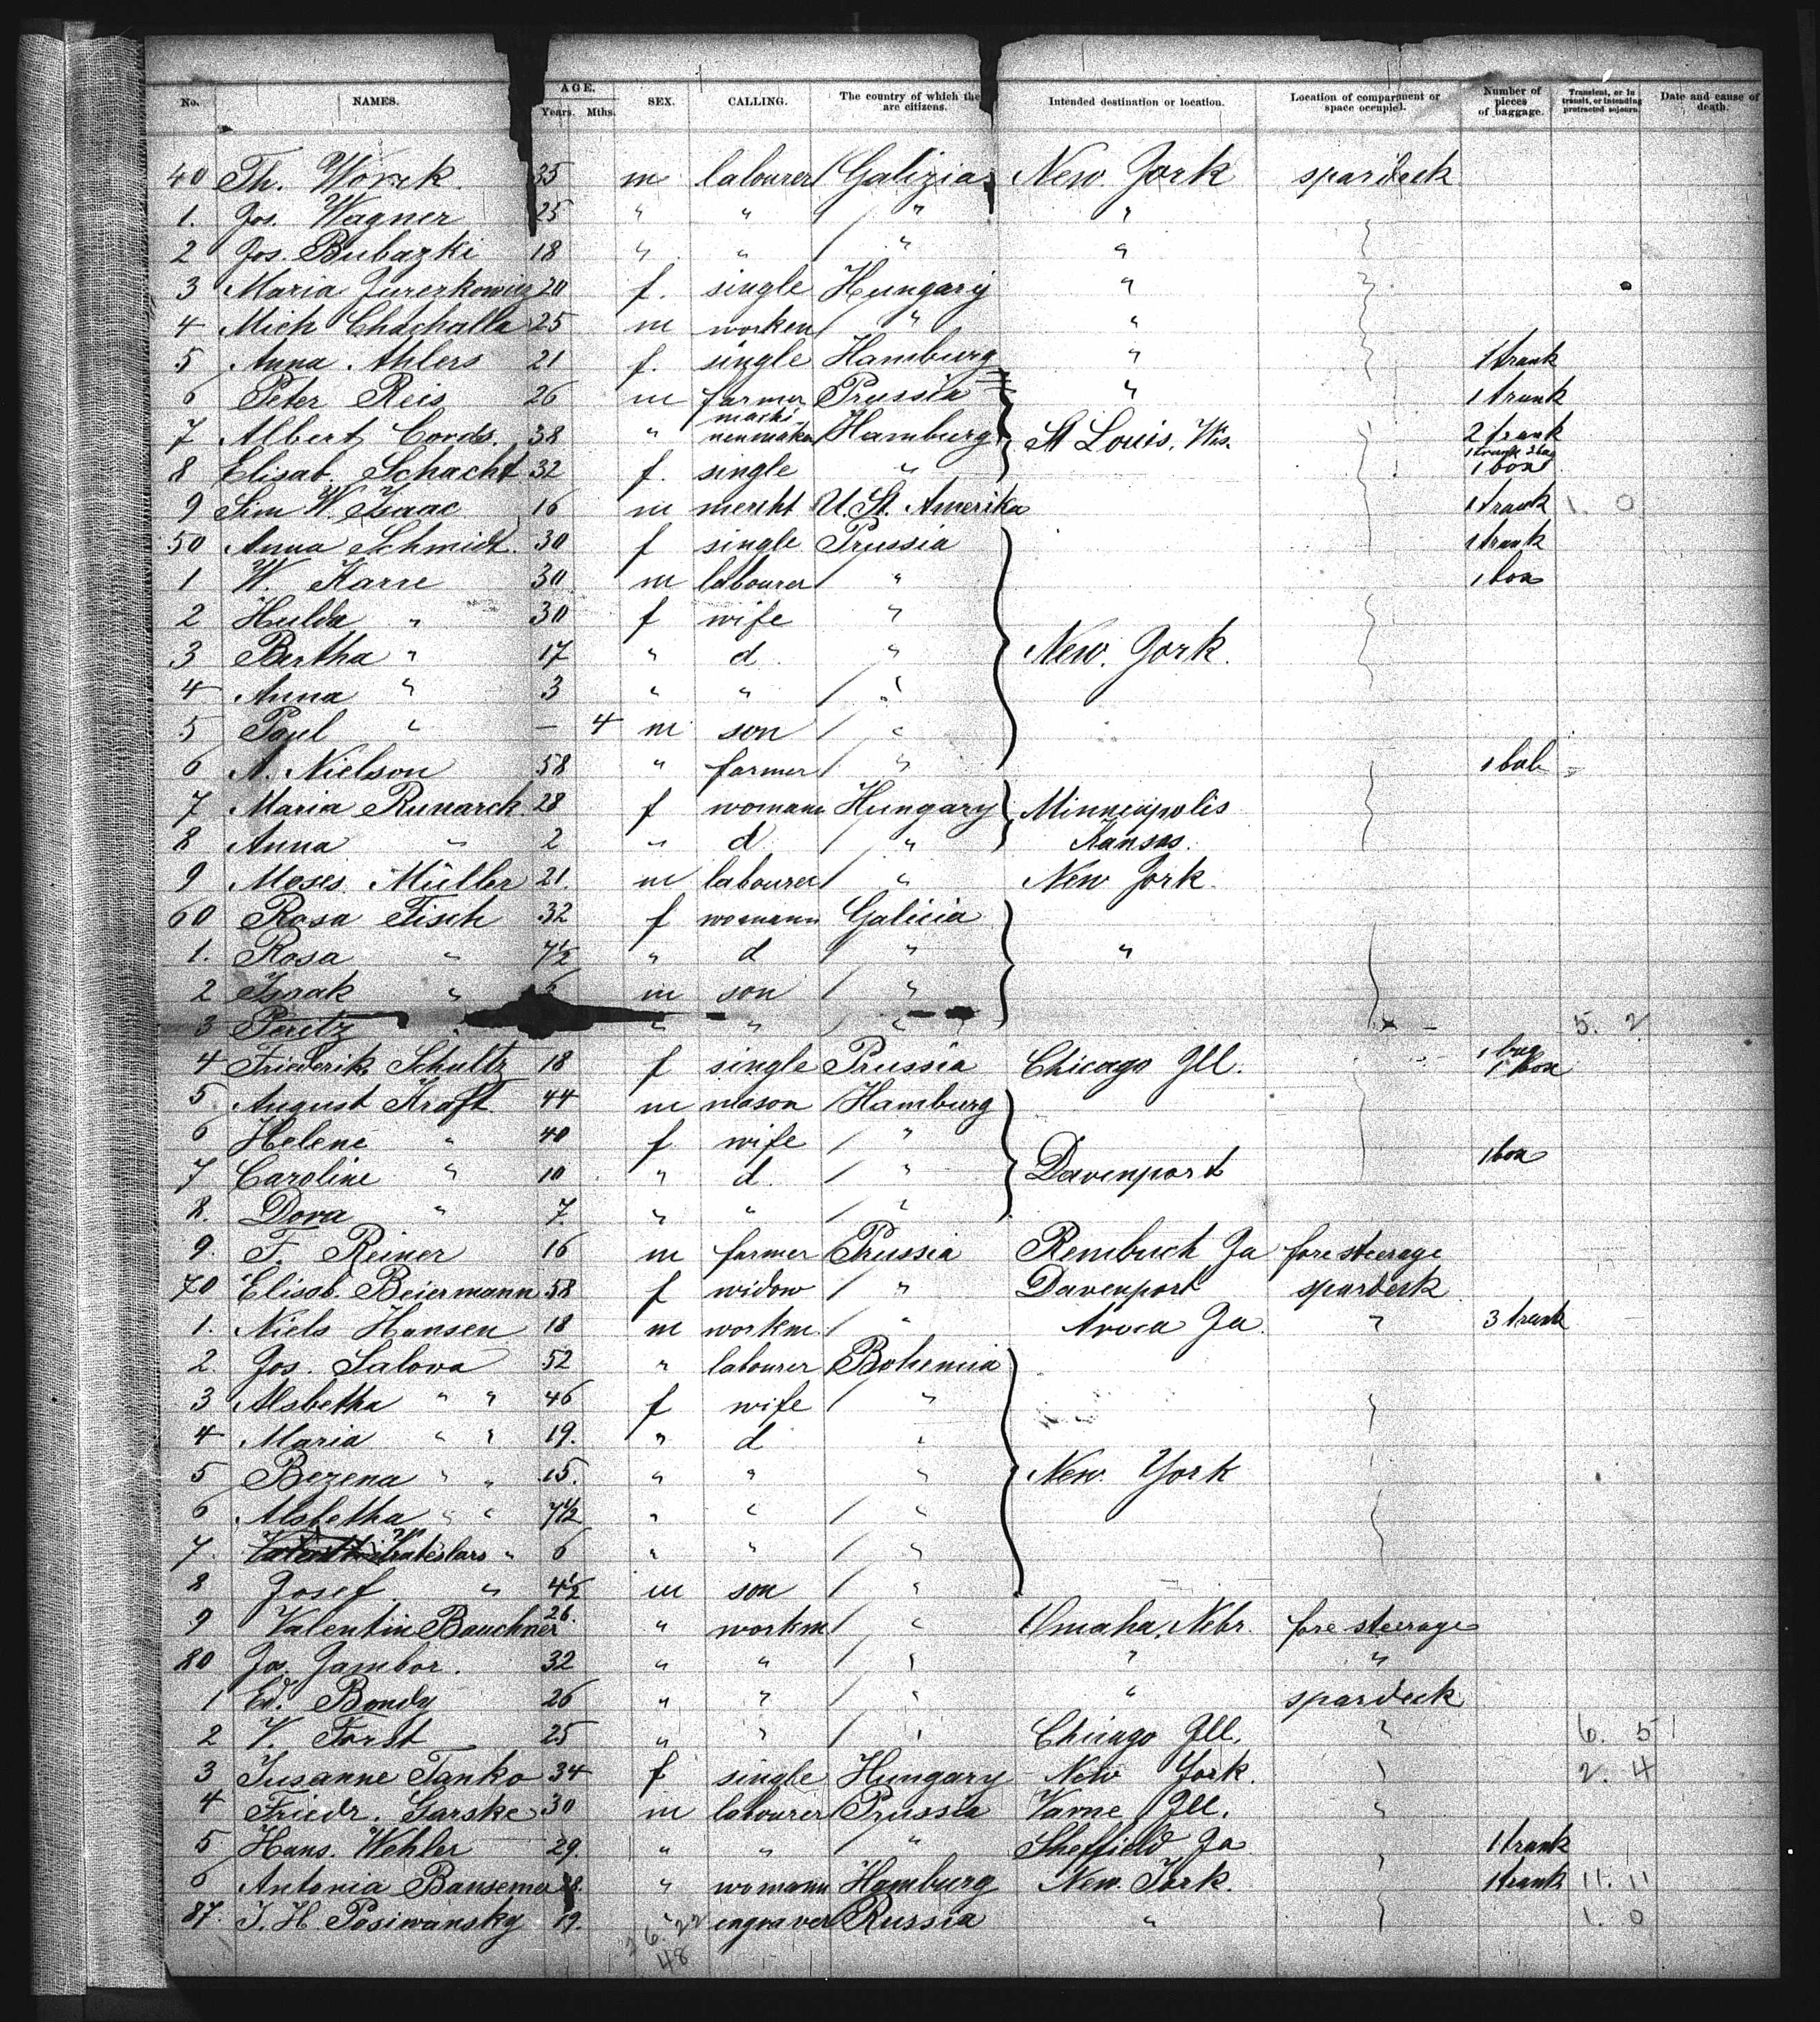 No. NAMES. AGE. Years. Mths. SEX. CALLING. The country of which the are citizens. Intended destination or location. Location of compartment or space occupied. Number of pieces of baggage. Transient, or in transit, or intending protracted sojourn. Date and cause of death.
40 Th. Worek 35 m labourer Galizia New York spardeck
1. Jos. Wagner 25 " " " "
2 Jos. Bubazki 18 " " " "
3 Maria Jurezkowiez 20 f. single Hungary "
4 Mich Chachalla 25 m worken " "
5 Anna Ahlers 21 f. single Hamburg " 1 trunk
6 Peter Reis 26 m farmer Prussia " 1 trunk
7 Albert Cords. 38 " machinenmaker Hamburg St Louis, Wis. 2 trunk
8 Elisab. Schacht 32 f. single " 1 trunk 1 box
9 Sim W. Isaac 16 m mercht U. St. Amerika 1 trunk 1. 0
50 Anna Schmidt. 30 f single Prussia 1 trunk
1 W. Karre 30 m labourer " 1 box
2 Hulda " 30 f wife "
3 Bertha " 17 " d " New York.
4 Anna " 3 " " "
5 Paul " — 4 m son "
6 A. Nielson 58 " farmer "
7 Maria Runarck 28 f womann Hungary Minneapolis
8 Anna " 2 " d " Kansas.
9 Moses Müller 21. m labourer " New York.
60 Rosa Fisch 32 f womann Galicia
1. Rosa " 7½ " d " "
2 Isaak " m son "
3 Peritz " " " " 5. 2
4 Friederike Schultz 18 f single Prussia Chicago Ill. 1 bag 1 box
5 August Kraft 44 m mason Hamburg
6 Helene " 40 f wife "
7 Caroline " 10 " d. " Davenport 1 box
8. Dora " 7. " " "
9. F. Reiner 16 m farmer Prussia Rembuch Ja fore steerage
70 Elisab. Beiermann 58 f widow " Davenport spardeck
1. Niels Hansen 18 m workm. " Avoca Ja. " 3 trunk
2. Jos. Salova 52 " labourer Bohemia
3 Alsbetha " " 46 f wife "
4 Maria " " 19. " d "
5 Bezena " " 15. " " " New York
6 Alsbetha " " 7½ " " "
7. " 6 " " "
8 Josef " 4½ m son "
9 Valentin Bauchner 26. " workm " Omaha, Nebr. fore steerage
80 Jos. Jambor. 32 " " " " "
1 Ed. Bondy 26 " " " " spardeck
2 V. Forst 25 " " " Chicago Ill. " 6. 5
3 Susanne Tanko 34 f single Hungary New York. " 2. 4
4 Friedr. Garske 30 m labourer Prussia Varne Ill. "
5 Hans. Wehler 29. " " " Sheffield Ja " 1 trunk
6 Antonia Bansemer 28. " womann Hamburg New York. 1 trunk 11. 11
87. J. H. Posiwansky 19. " engraver Russia " 1. 0
26. 22
48